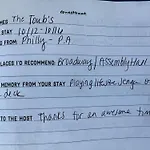 GUESTBOOK
MED The Toub's
STAY 10/12-10/16
D FROM Philly - P.A
LACES I'D RECOMMEND Broadway / Assembly Hall
MEMORY FROM YOUR STAY Playing life size Jenga
deck
TO THE HOST Thanks for an awesome time